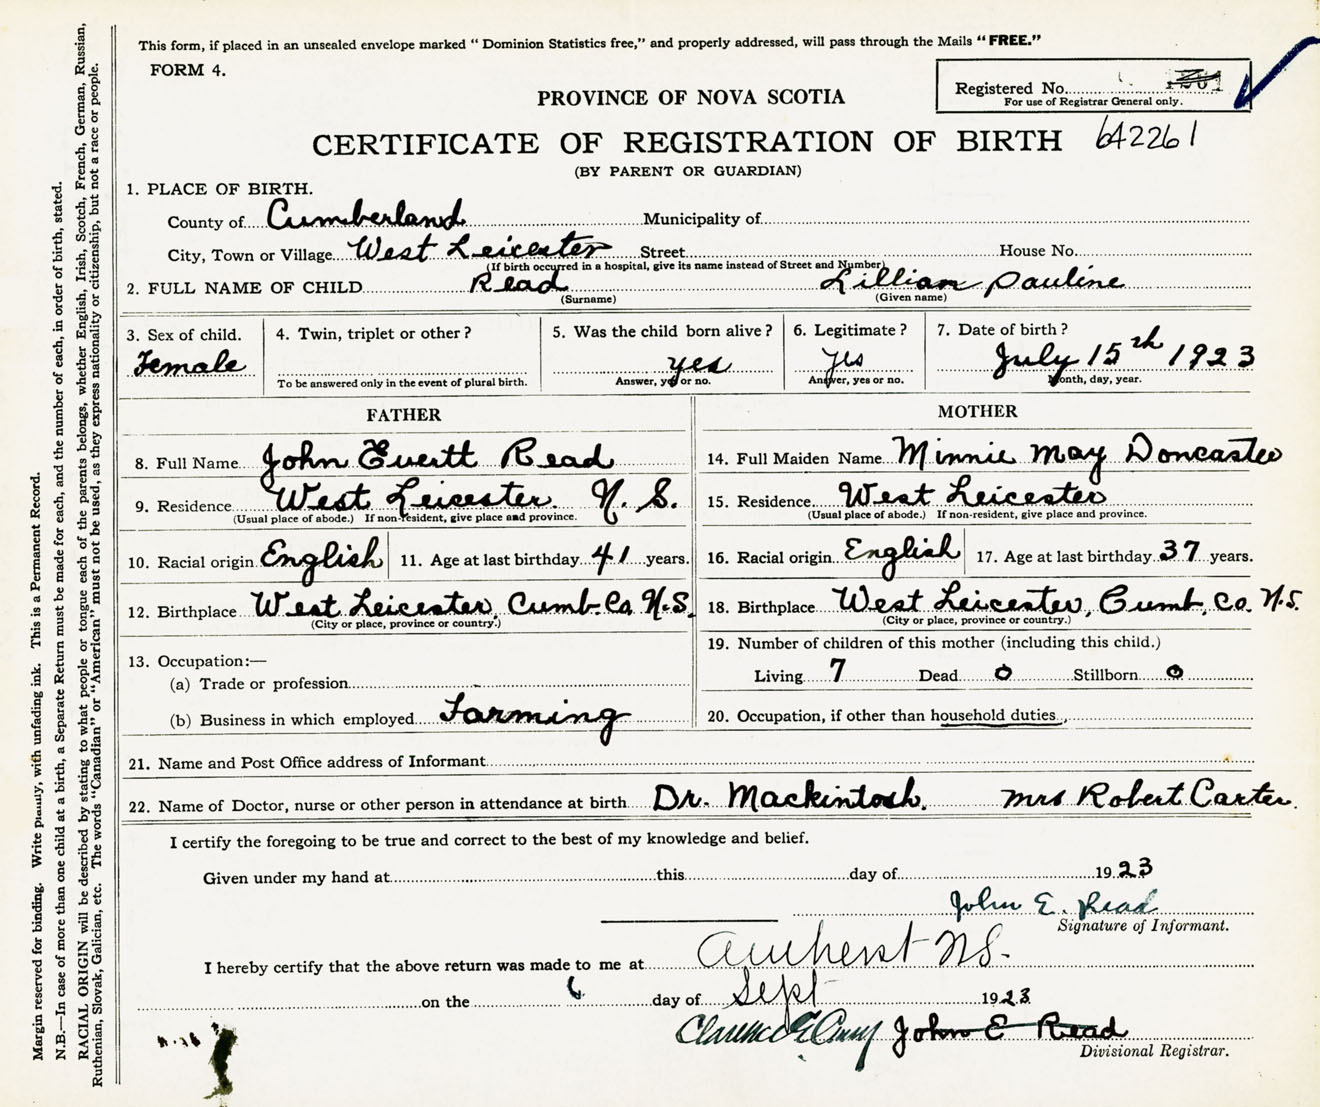 This form, if placed in an unsealed envelope marked “ Dominion Statistics free,” and properly addressed, will pass through the Mails “FREE.”
FORM 4.
Registered No.
For use of Registrar General only.
PROVINCE OF NOVA SCOTIA
CERTIFICATE OF REGISTRATION OF BIRTH 642261
(BY PARENT OR GUARDIAN)
1. PLACE OF BIRTH.
County of Cumberland Municipality of
City, Town or Village West Leicester Street House No.
(If birth occurred in a hospital, give its name instead of Street and Number)
2. FULL NAME OF CHILD Read Lillian Pauline
(Surname) (Given name)
3. Sex of child. 4. Twin, triplet or other ? 5. Was the child born alive ? 6. Legitimate ? 7. Date of birth ?
Female yes yes July 15th 1923
To be answered only in the event of plural birth. Answer, yes or no. Answer, yes or no. Month, day, year.
FATHER MOTHER
8. Full Name John Evertt Read 14. Full Maiden Name Minnie May Doncaster
9. Residence West Leicester. N. S. 15. Residence West Leicester
(Usual place of abode.) If non-resident, give place and province. (Usual place of abode.) If non-resident, give place and province.
10. Racial origin English 11. Age at last birthday 41 years. 16. Racial origin English 17. Age at last birthday 37 years.
12. Birthplace West Leicester, Cumb. Co. N.S. 18. Birthplace West Leicester, Cumb. Co. N.S.
(City or place, province or country.) (City or place, province or country.)
19. Number of children of this mother (including this child.)
13. Occupation:—
Living 7 Dead 0 Stillborn 0
(a) Trade or profession
(b) Business in which employed Farming 20. Occupation, if other than household duties
21. Name and Post Office address of Informant
22. Name of Doctor, nurse or other person in attendance at birth Dr. Mackintosh. Mrs Robert Carter.
I certify the foregoing to be true and correct to the best of my knowledge and belief.
Given under my hand at this day of 1923
John E. Read
Signature of Informant.
I hereby certify that the above return was made to me at Amherst N.S.
on the 6 day of Sept 1923
Clarence E John E Read
Divisional Registrar.
Margin reserved for binding. Write plainly, with unfading ink. This is a Permanent Record.
N.B.—In case of more than one child at a birth, a Separate Return must be made for each, and the number of each, in order of birth, stated.
RACIAL ORIGIN will be described by stating to what people or tongue each of the parents belongs, whether English, Irish, Scotch, French, German, Russian,
Ruthenian, Slovak, Galician, etc. The words “Canadian” or “American” must not be used, as they express nationality or citizenship, but not a race or people.